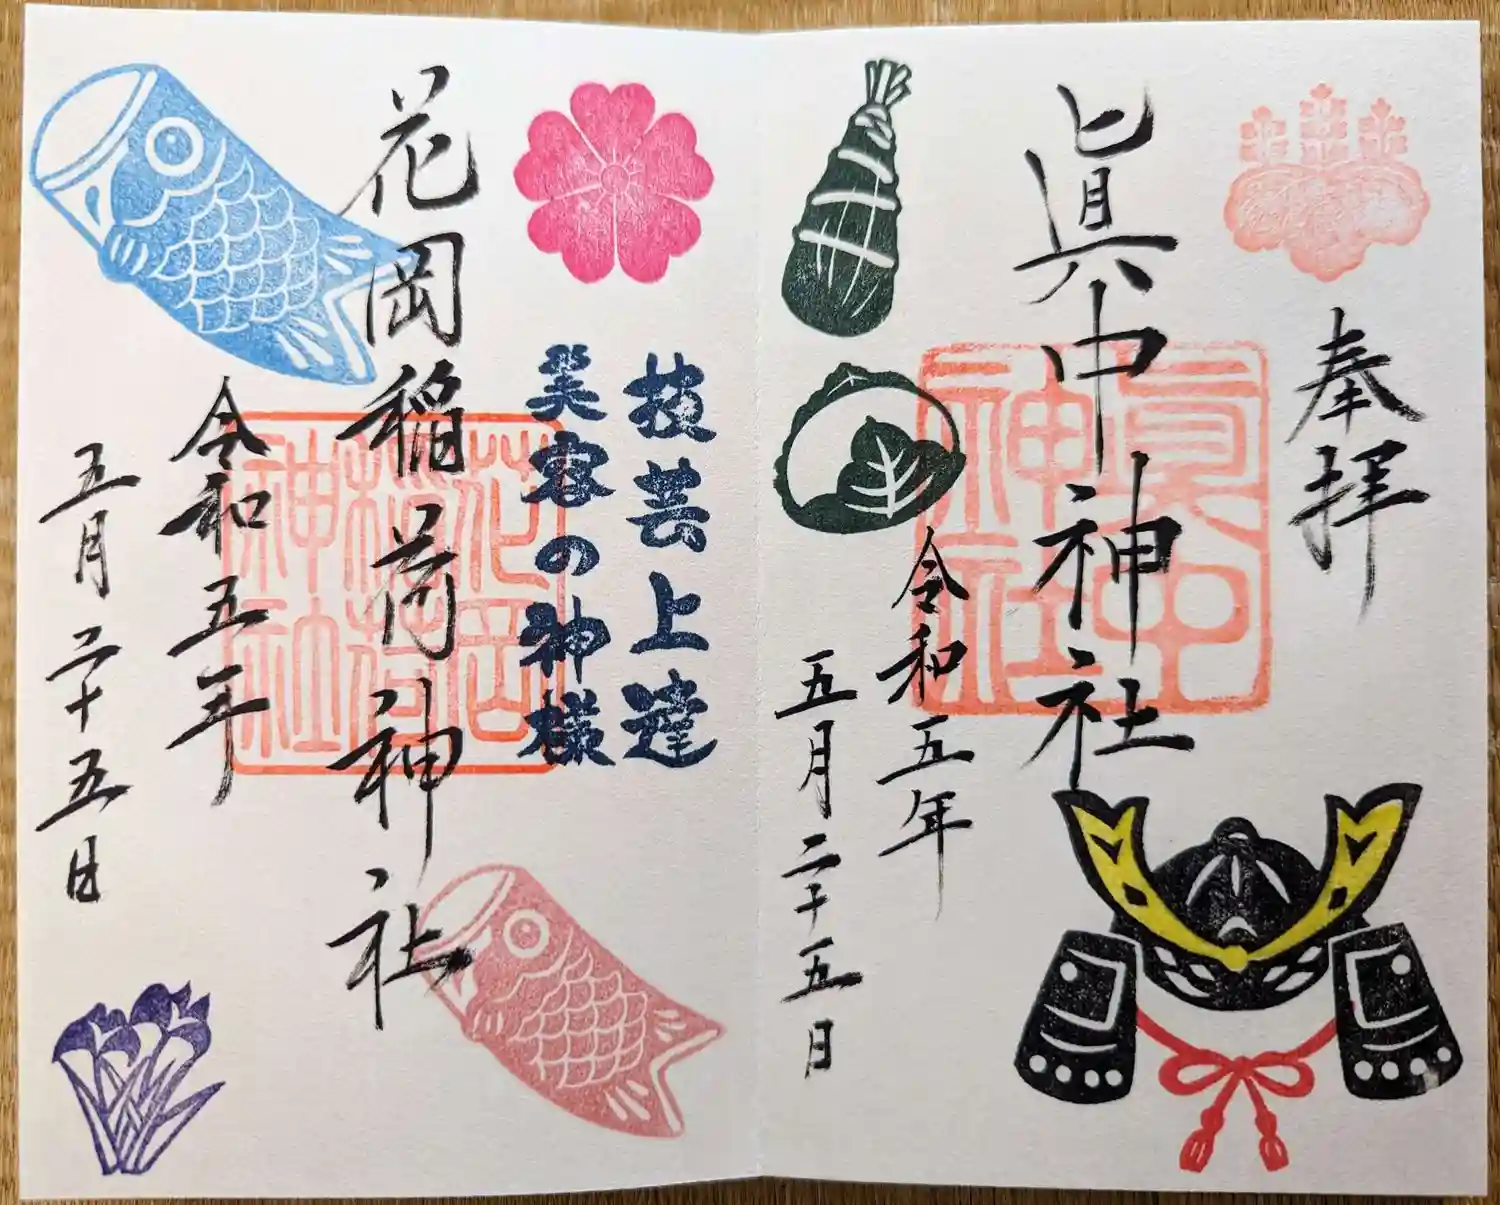 奉拝
眞中神社
真中
神社
令和五年
五月二十五日
技芸上達
美容の神様
花岡稲荷神社
花岡
稲荷
神社
令和五年
五月二十五日